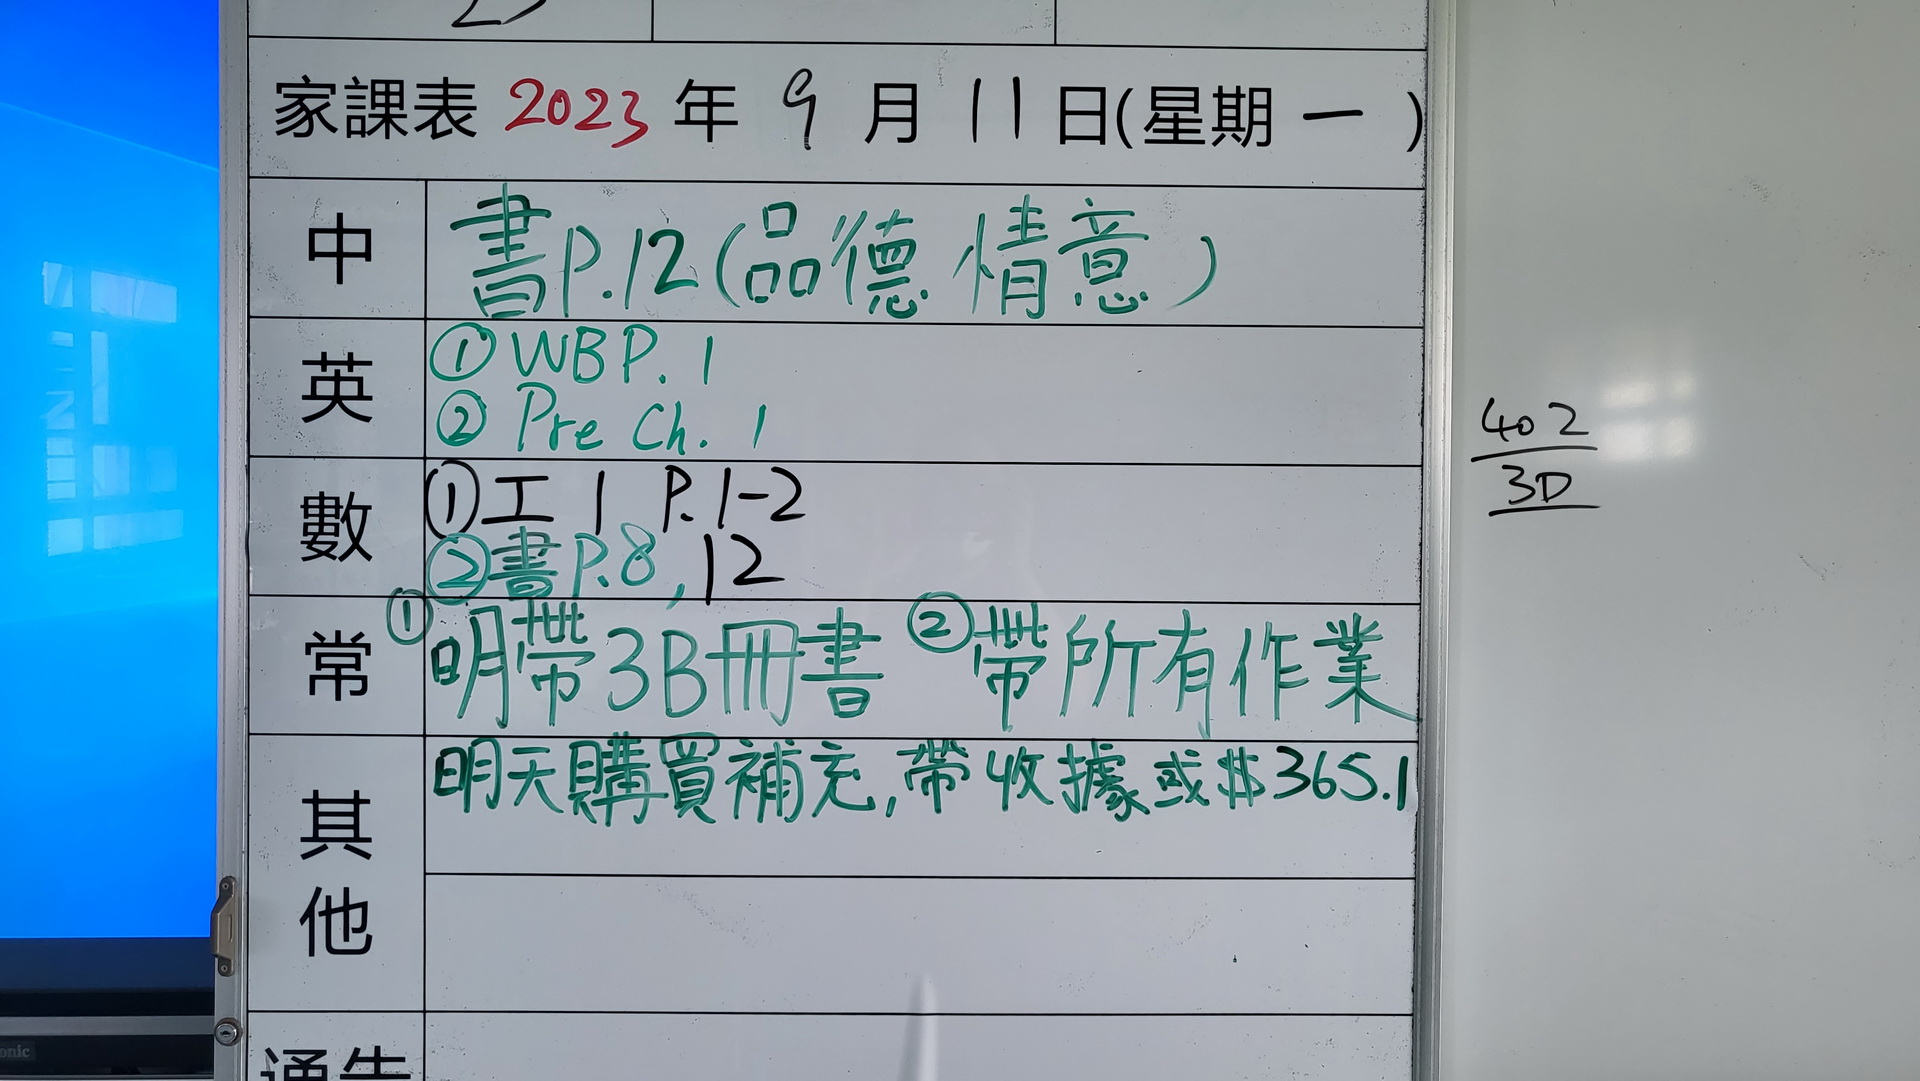 家課表 2023 年 9 月 11 日(星期 一 )
中 書P.12(品德情意)
英 ① WB P. 1
② Pre Ch. 1
數 ①工 1 P.1-2
②書P.8, 12
常 ①明帶3B冊書 ②帶所有作業
其他 明天購買補充,帶收據或$365.1
通告
402
3D